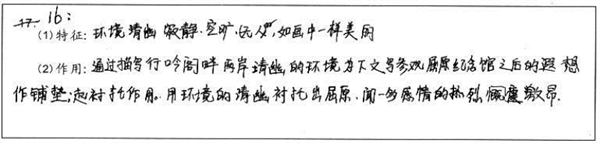 17. 16:
(1)特征:环境清幽 寂静.空旷.远人,如画中一样美的
(2)作用:通过描写行吟阁畔两岸清幽的环境为下文写参观屈原纪念馆之后的遐想
作铺垫;起衬托作用.用环境的清幽衬托出屈原.闻一多感情的热烈 慷慨激昂.